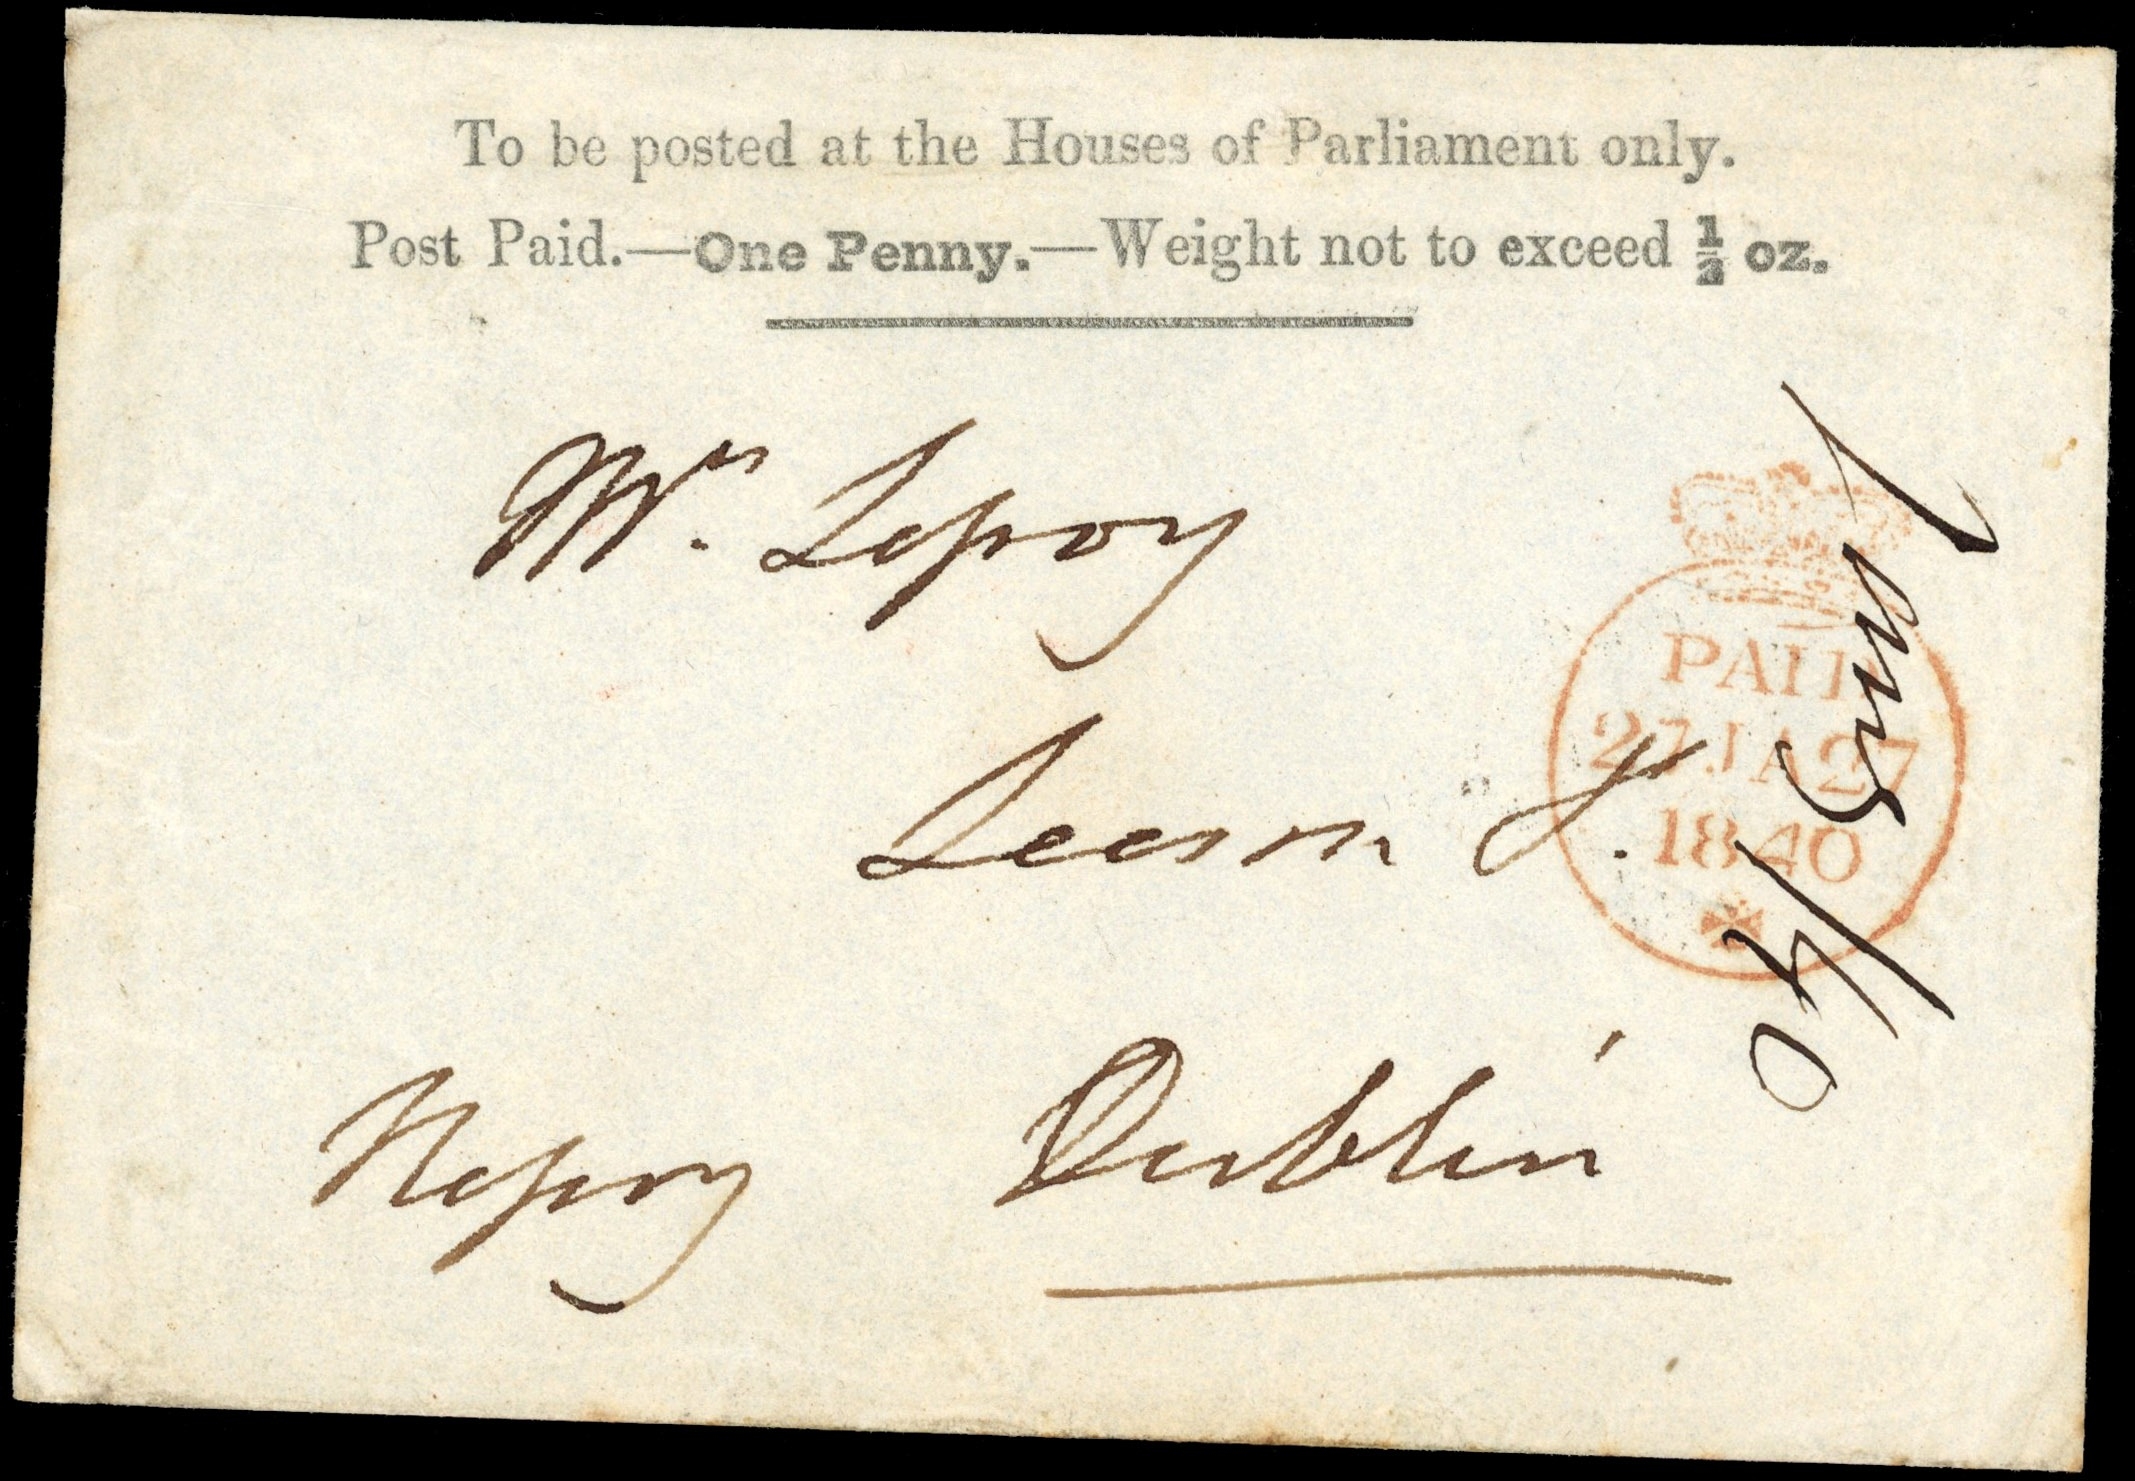 To be posted at the Houses of Parliament only.
Post Paid.—One Penny.—Weight not to exceed ½ oz.
Mrs. Lefroy
Leeson St.
Dublin
PAID
27 JA 27
1840
/40